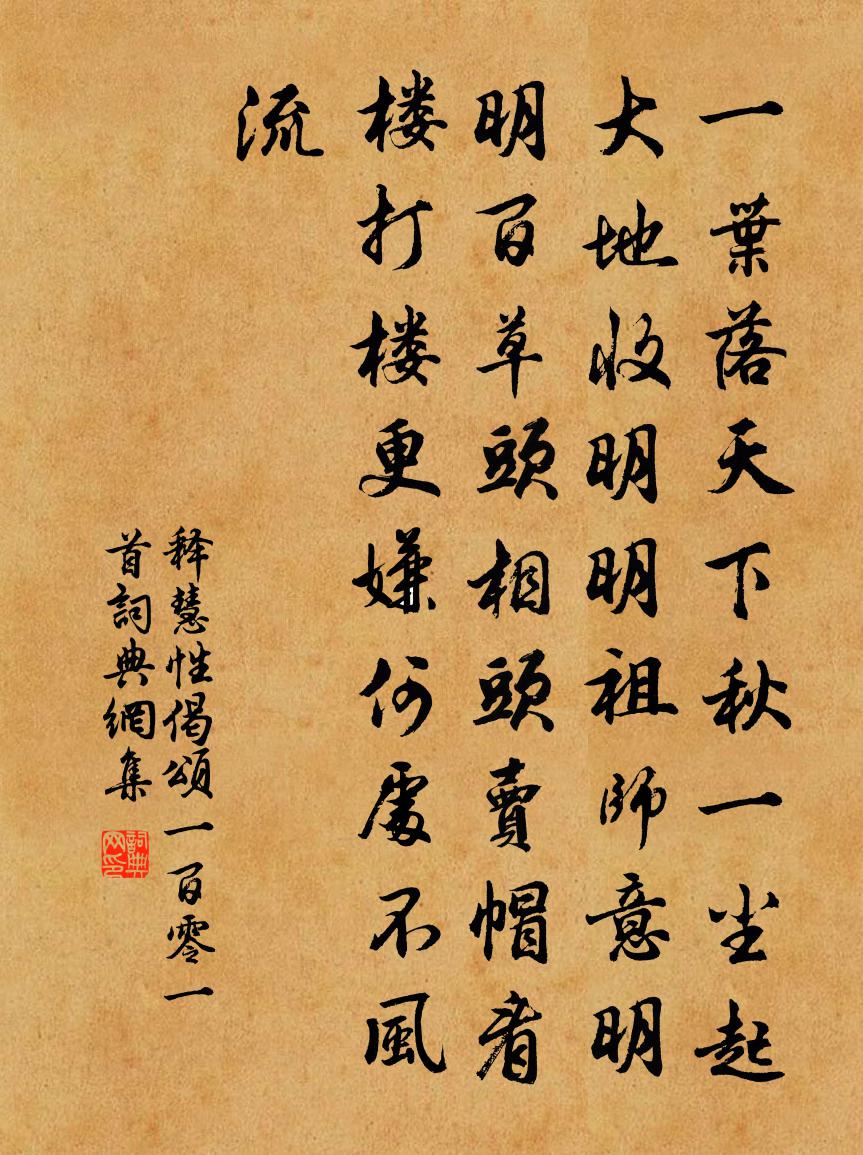 一葉落天下秋一尘起
大地收明明祖師意明
明百草頭相頭賣帽看
楼打楼更嫌何處不風
流
释慧性偈頌一百零一
首詞典網集
詞典网印